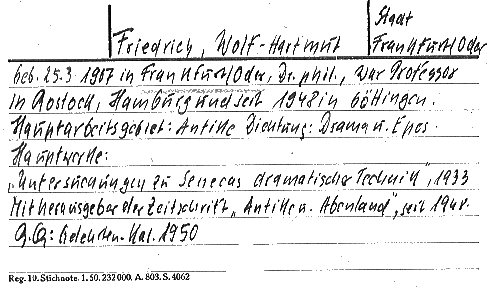 Stadt
Friedrich, Wolf-Hartmut Frankfurt/Oder
geb. 25.3.1907 in Frankfurt/Oder, Dr. phil., war Professor
in Rostock, Hamburg und seit 1948 in Göttingen.
Hauptarbeitsgebiet: Antike Dichtung: Drama u. Epos.
Hauptwerke:
„Untersuchungen zu Senecas dramatischer Technik", 1933
Mitherausgeber der Zeitschrift „Antike u. Abendland", seit 1948.
Q.Q: Gelehrten-Kal. 1950
Reg. 10. Stichnote. 1. 50. 232 000. A. 803. S. 4062